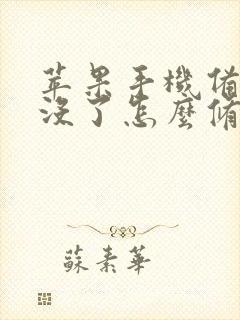 苹果手機備
沒了怎麼脩
蘇素華